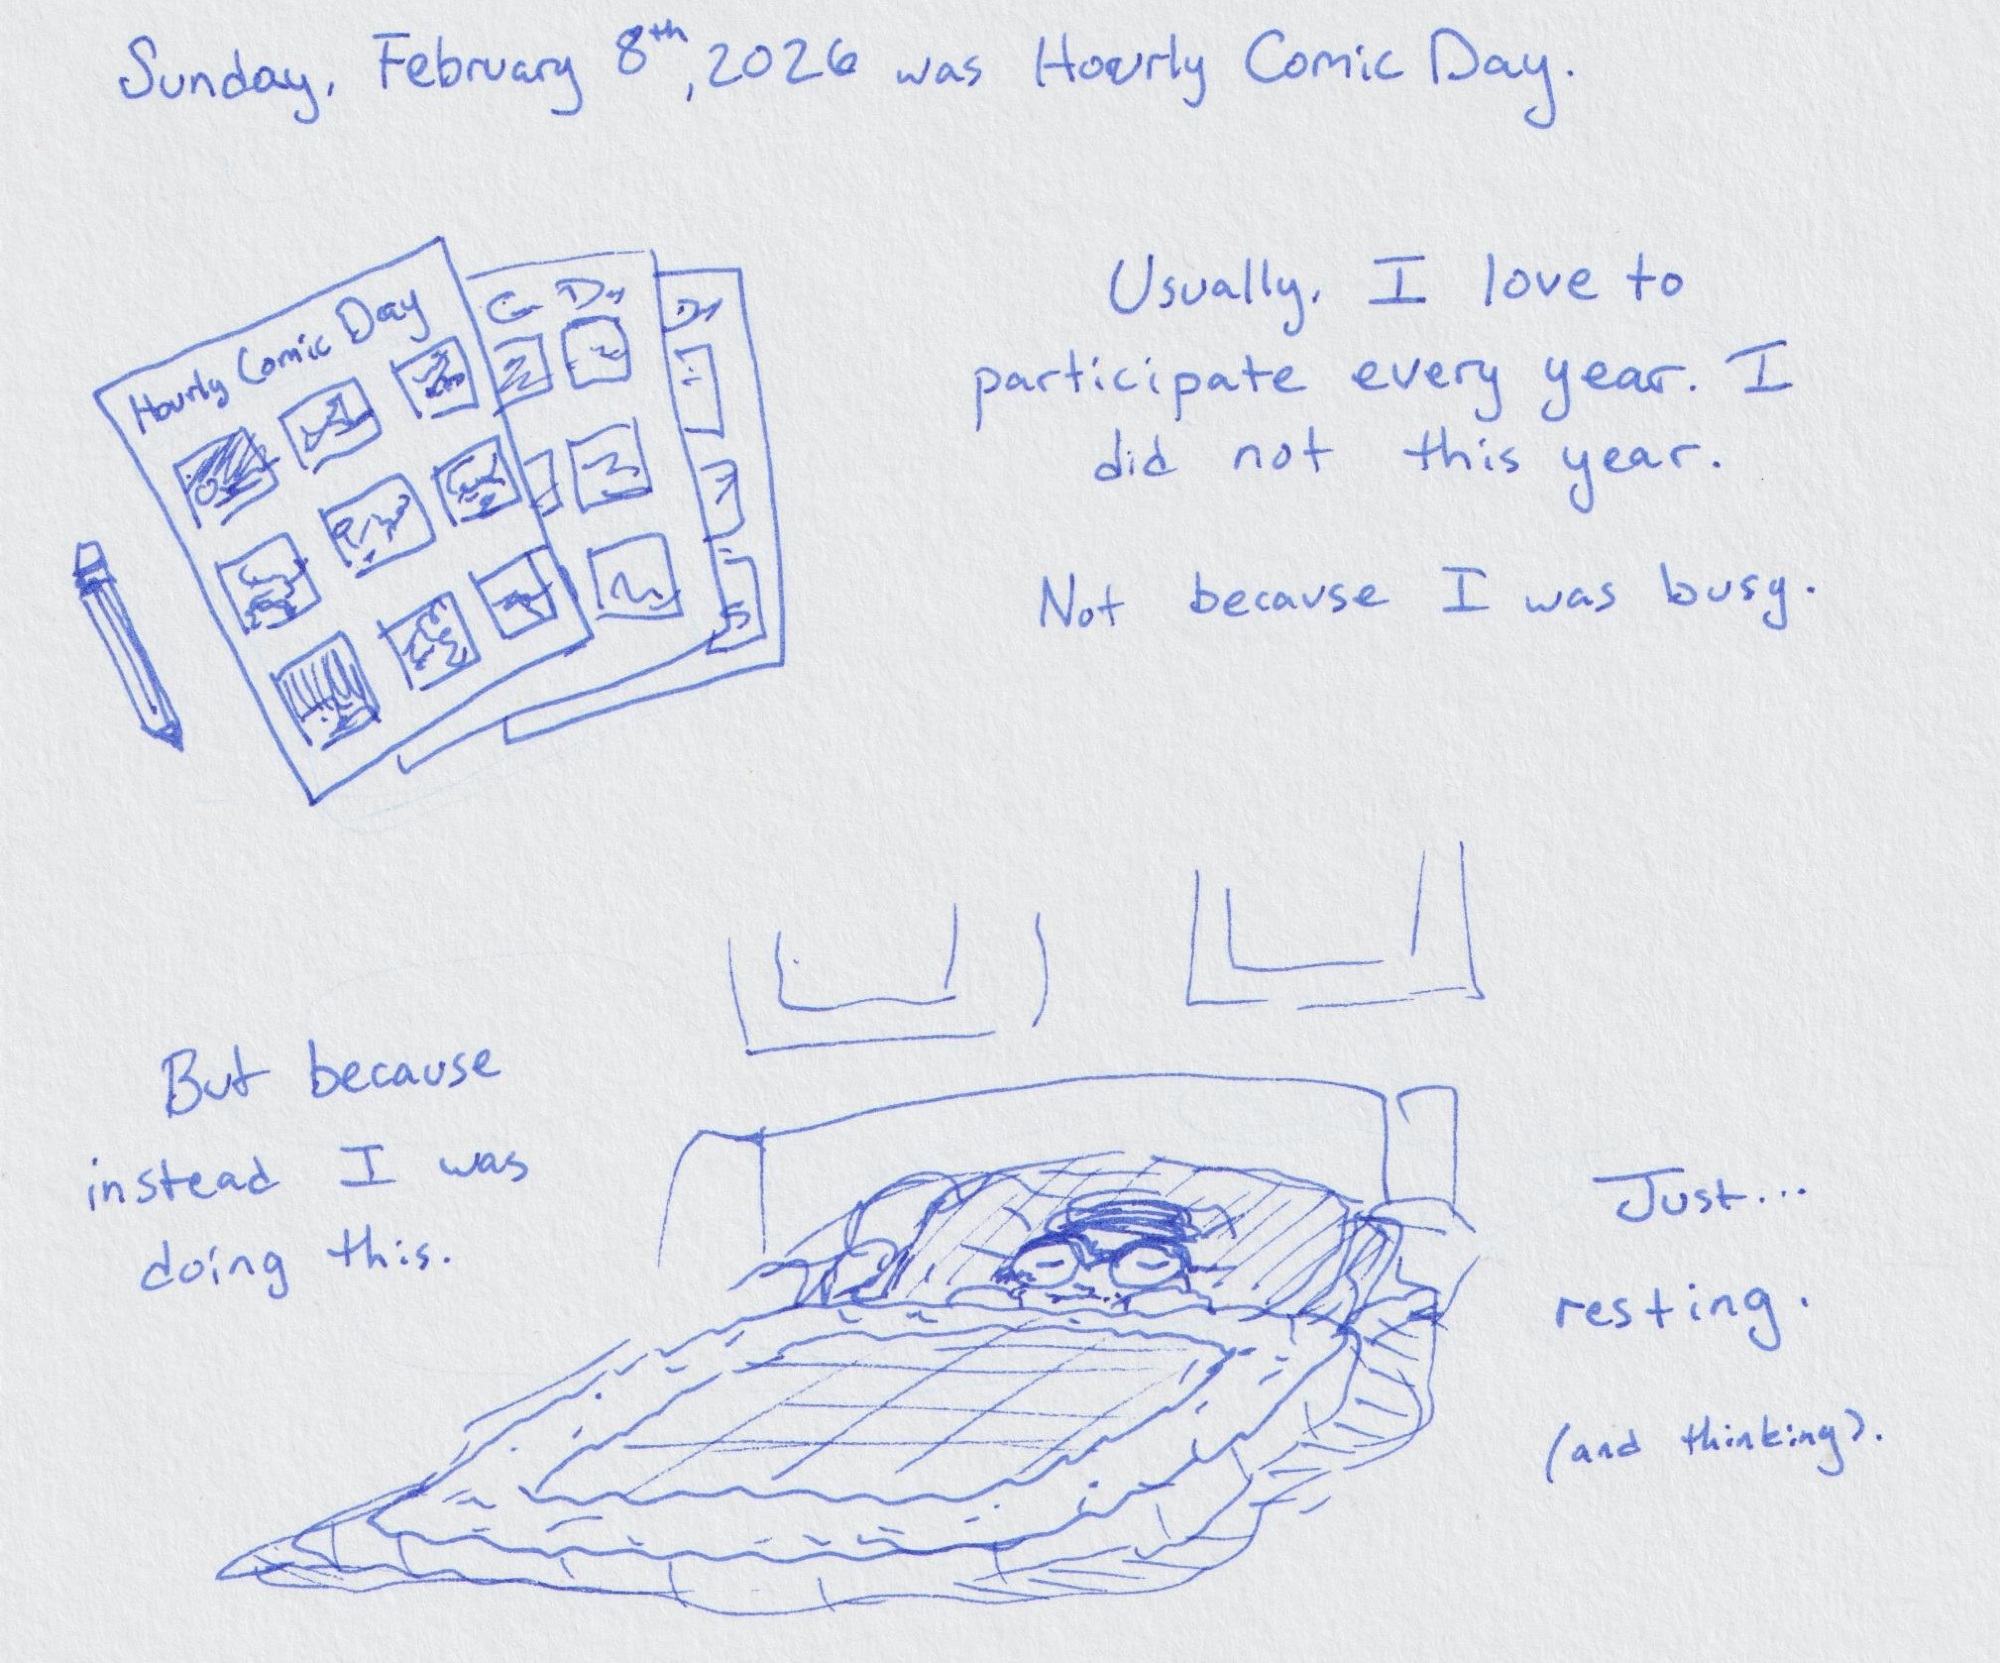 Sunday, February 8th, 2026 was Hourly Comic Day.
Hourly Comic Day
Usually, I love to
participate every year. I
did not this year.
Not because I was busy.
But because
instead I was
doing this.
Just...
resting.
(and thinking).